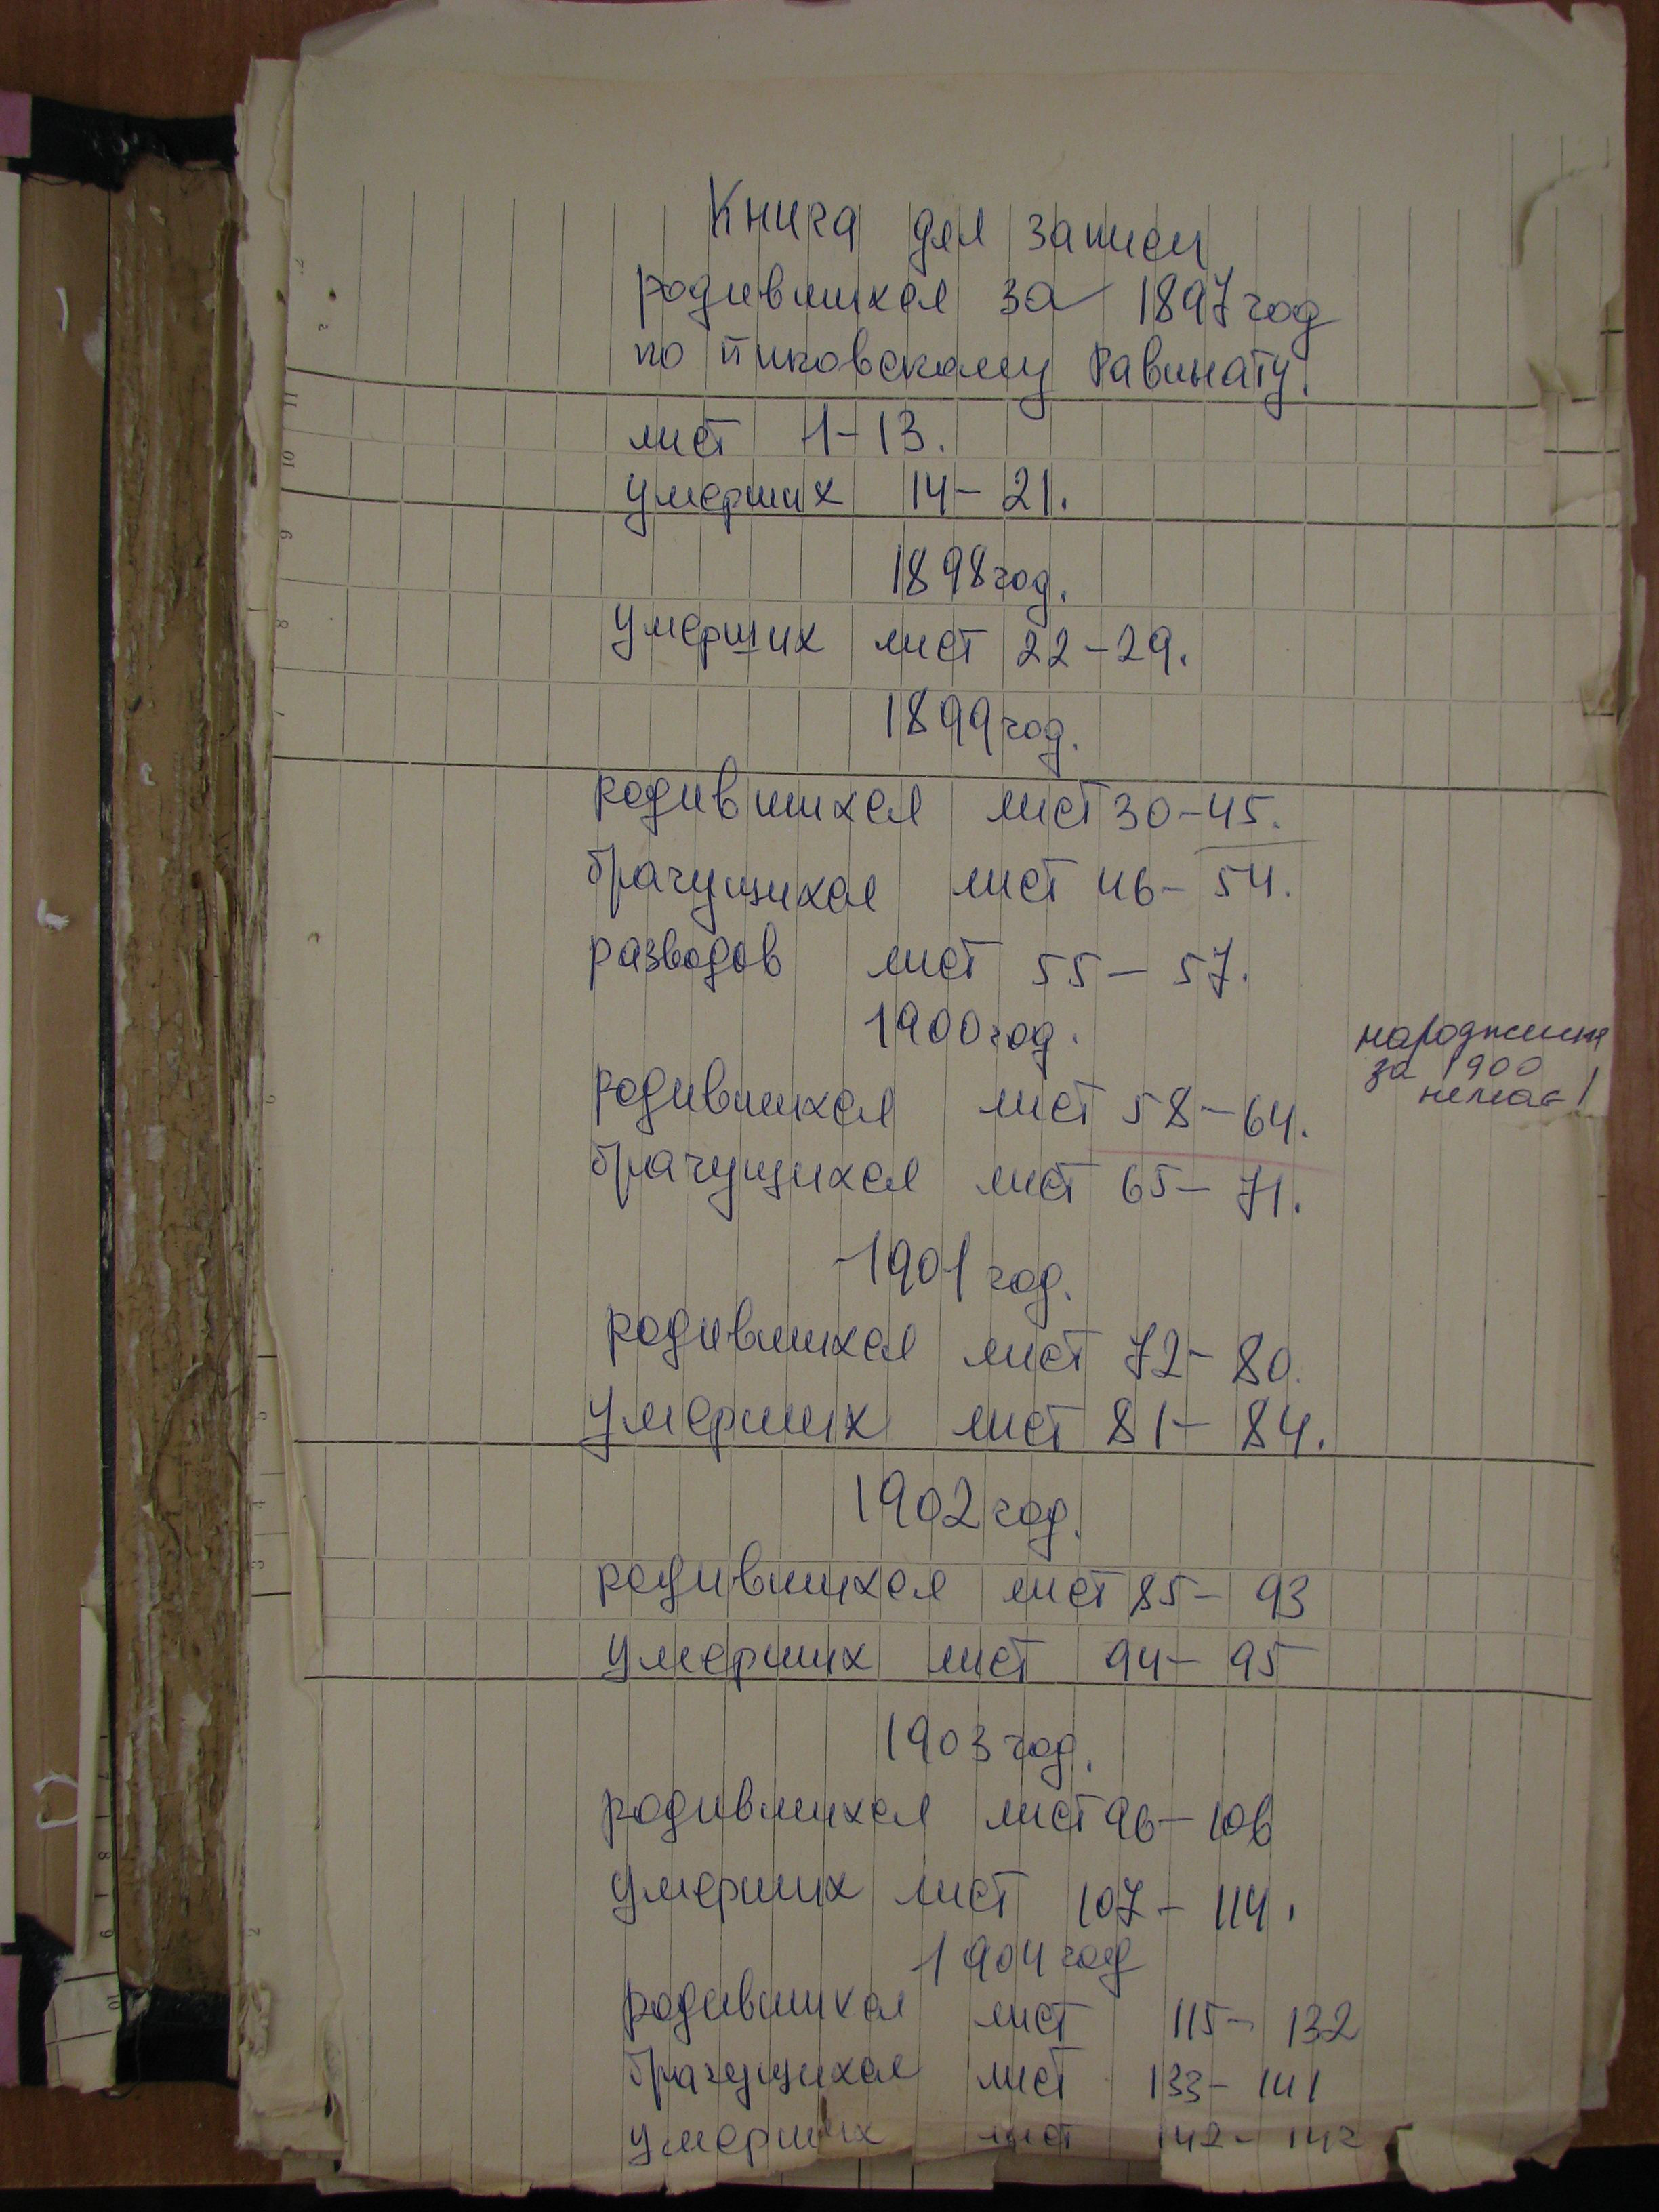 Книга для записи
родившихся за 1897 год
по пиковскому Равинату.
лист 1-13.
умерших 14-21.
1898 год.
умерших лист 22-29.
1899 год.
родившихся лист 30-45.
брачущихся лист 46-54.
разводов лист 55-57.
1900 год.
народження
за 1900
немає!
родившихся лист 58-64.
брачущихся лист 65-71.
1901 год.
родившихся лист 72-80.
умерших лист 81-84.
1902 год.
родившихся лист 85-93
умерших лист 94-95
1903 год.
родившихся лист 96-106
умерших лист 107-114.
1904 год
родившихся лист 115-132
брачущихся лист 133-141
умерших лист